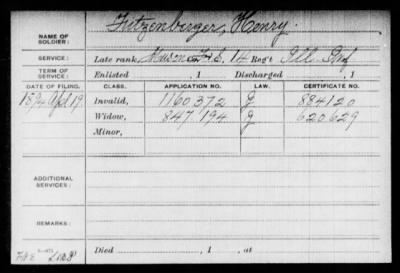 NAME OF SOLDIER: Fitzenberger, Henry.
SERVICE: Late rank, Musn F. & S. 14 Reg't Ill. Inf
TERM OF SERVICE: Enlisted , 1 Discharged , 1
DATE OF FILING. CLASS. APPLICATION NO. LAW. CERTIFICATE NO.
Apl 19 Invalid, 1160372 G 884120
Widow, 847194 G 620629
Minor,
ADDITIONAL SERVICES:
REMARKS:
Died , 1 , at